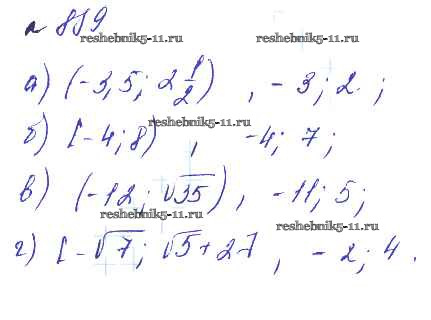 № 859
reshebnik5-11.ru reshebnik5-11.ru
а) (-3,5; 2 1/2) , -3; 2. ;
reshebnik5-11.ru
б) [-4; 8) , -4; 7;
в) (-12; √35) , -11; 5;
reshebnik5-11.ru
reshebnik5-11.ru
г) [-√7; √5+2] , -2; 4.